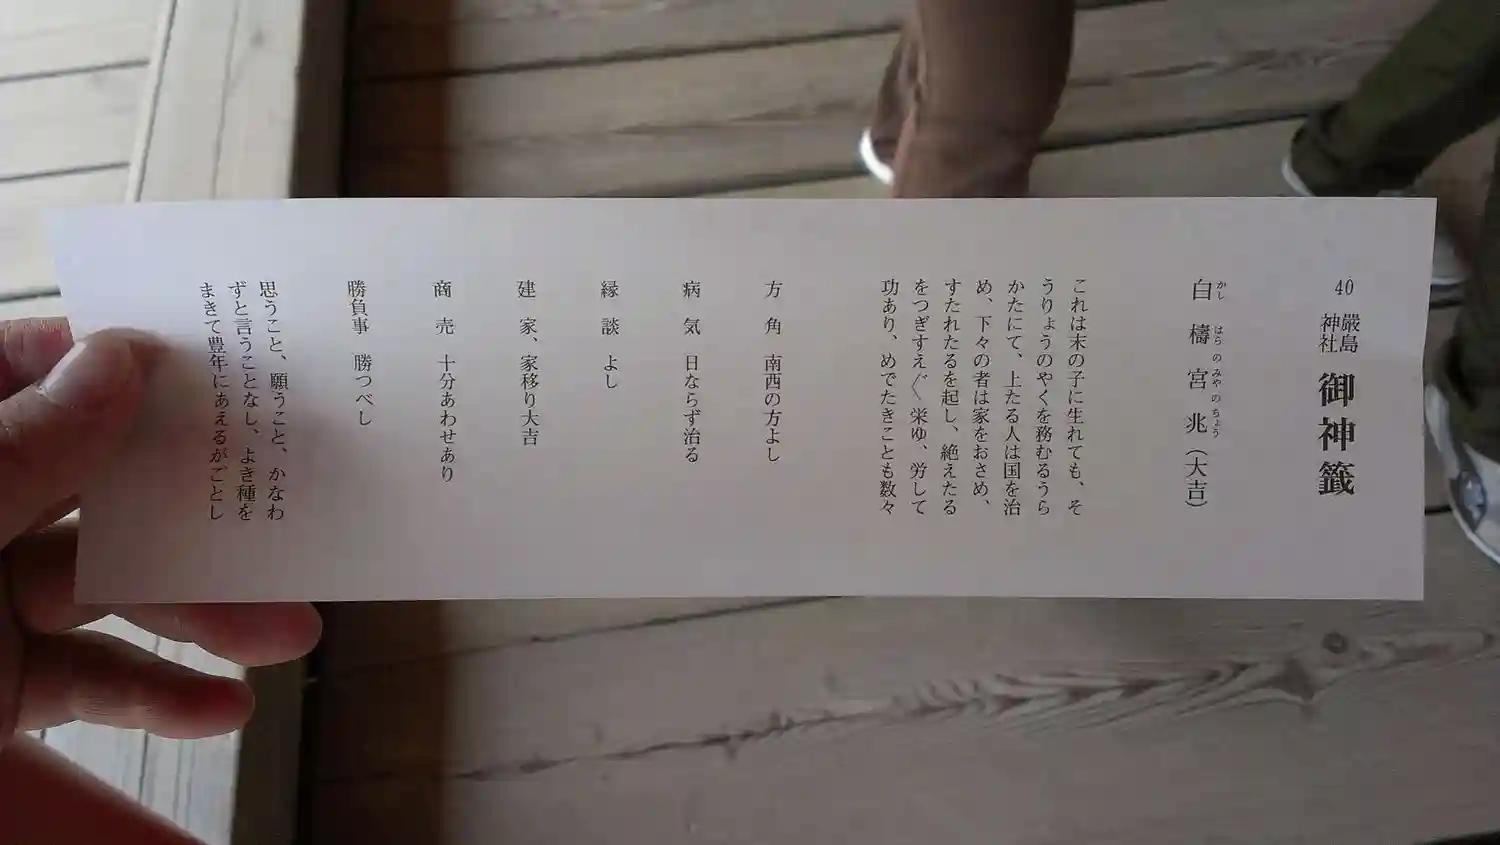 40 厳島神社 御神籤
白檮宮兆（大吉）
かしはらのみやのちょう
これは末の子に生れても、そ
うりょうのやくを務むるうら
かたにて、上たる人は国を治
め、下々の者は家をおさめ、
すたれたるを起し、絶えたる
をつぎすえ〴〵栄ゆ、労して
功あり、めでたきことも数々
方角 南西の方よし
病気 日ならず治る
縁談 よし
建家、家移り大吉
商売 十分あわせあり
勝負事 勝つべし
思うこと、願うこと、かなわ
ずと言うことなし、よき種を
まきて豊年にあえるがごとし